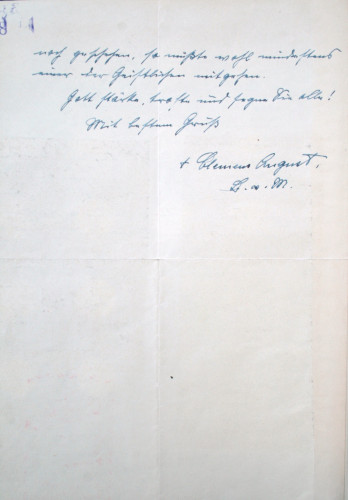 noch geschehen, so müßte wohl mindestens
einer der Geistlichen mitgehen.
Gott stärke, tröste und segne Sie alle!
Mit bestem Gruß
+ Clemens August,
B. v. M.